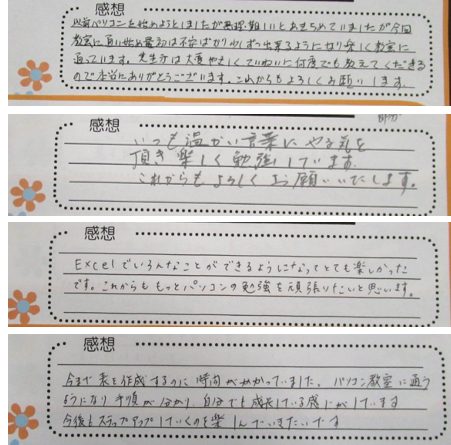 感想
以前パソコンを始めようとしましたが無理、難しいとあきらめていましたが今回
教室に通い始め最初は不安ばかり少しずつ出来るようになり楽しく教室に
通っています。先生方は大変やさしくていねいに何度でも教えてくださる
ので本当にありがとうございます。これからもよろしくお願いします。
感想
いつも温かい言葉にやる気を
頂き楽しく勉強しています。
これからもよろしくお願いいたします。
感想
Excelでいろんなことができるようになってとても楽しかった
です。これからももっとパソコンの勉強を頑張りたいと思います。
感想
今まで表を作成するのに時間がかかっていました。パソコン教室に通う
ようになり手順が分かり、自分でも成長している感じがしています
今後もステップアップしていくのを楽しんでいきたいです